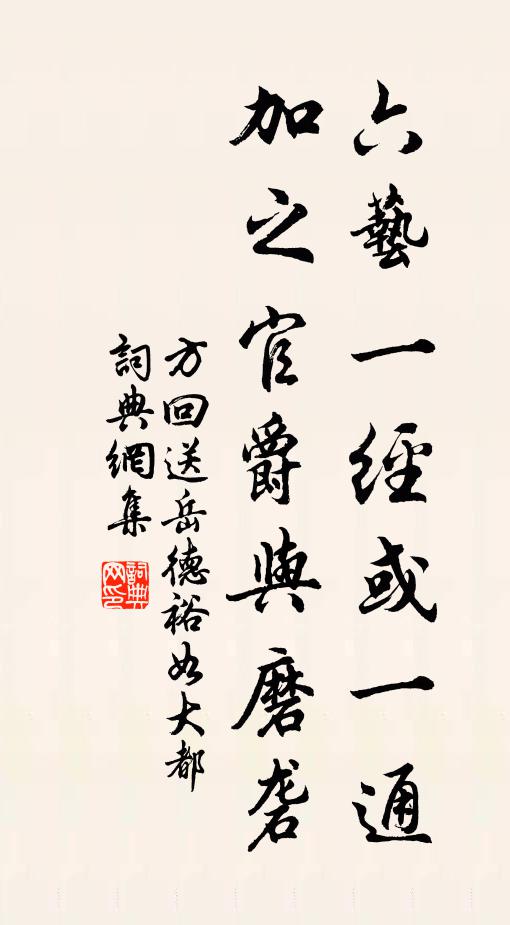 六藝一經或一通
加之官爵與磨砻
方回送岳德裕如大都
詞典網集
詞典网印